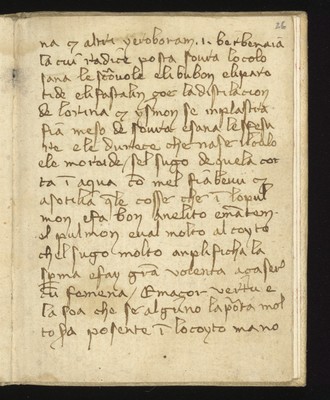 26
na et altri veroboram .i. berbenaia
la cui radice posta soura lo colo
sana le scrouole eli bubon eli paro
tide eli fastalin zoe la distilacion
de lo rina et se mon se inplastra
fia meso de soura e sana le sfesa
ure e le dureçe che nase in lo culo
e le moroide / sel sugo de quela cot
ta in aqua con mel fia beuu et
asotilia quele cosse che in lo pul
mon e fa bon anelito e matem
el pulmon e ual molto al coyto
ch el sugo molto anplificha la
sperma e fay gran volenta a çaser
cum femena / E maçor vertu e
la soa che se alguno la porta mol
to sera posente in lo coyto mano